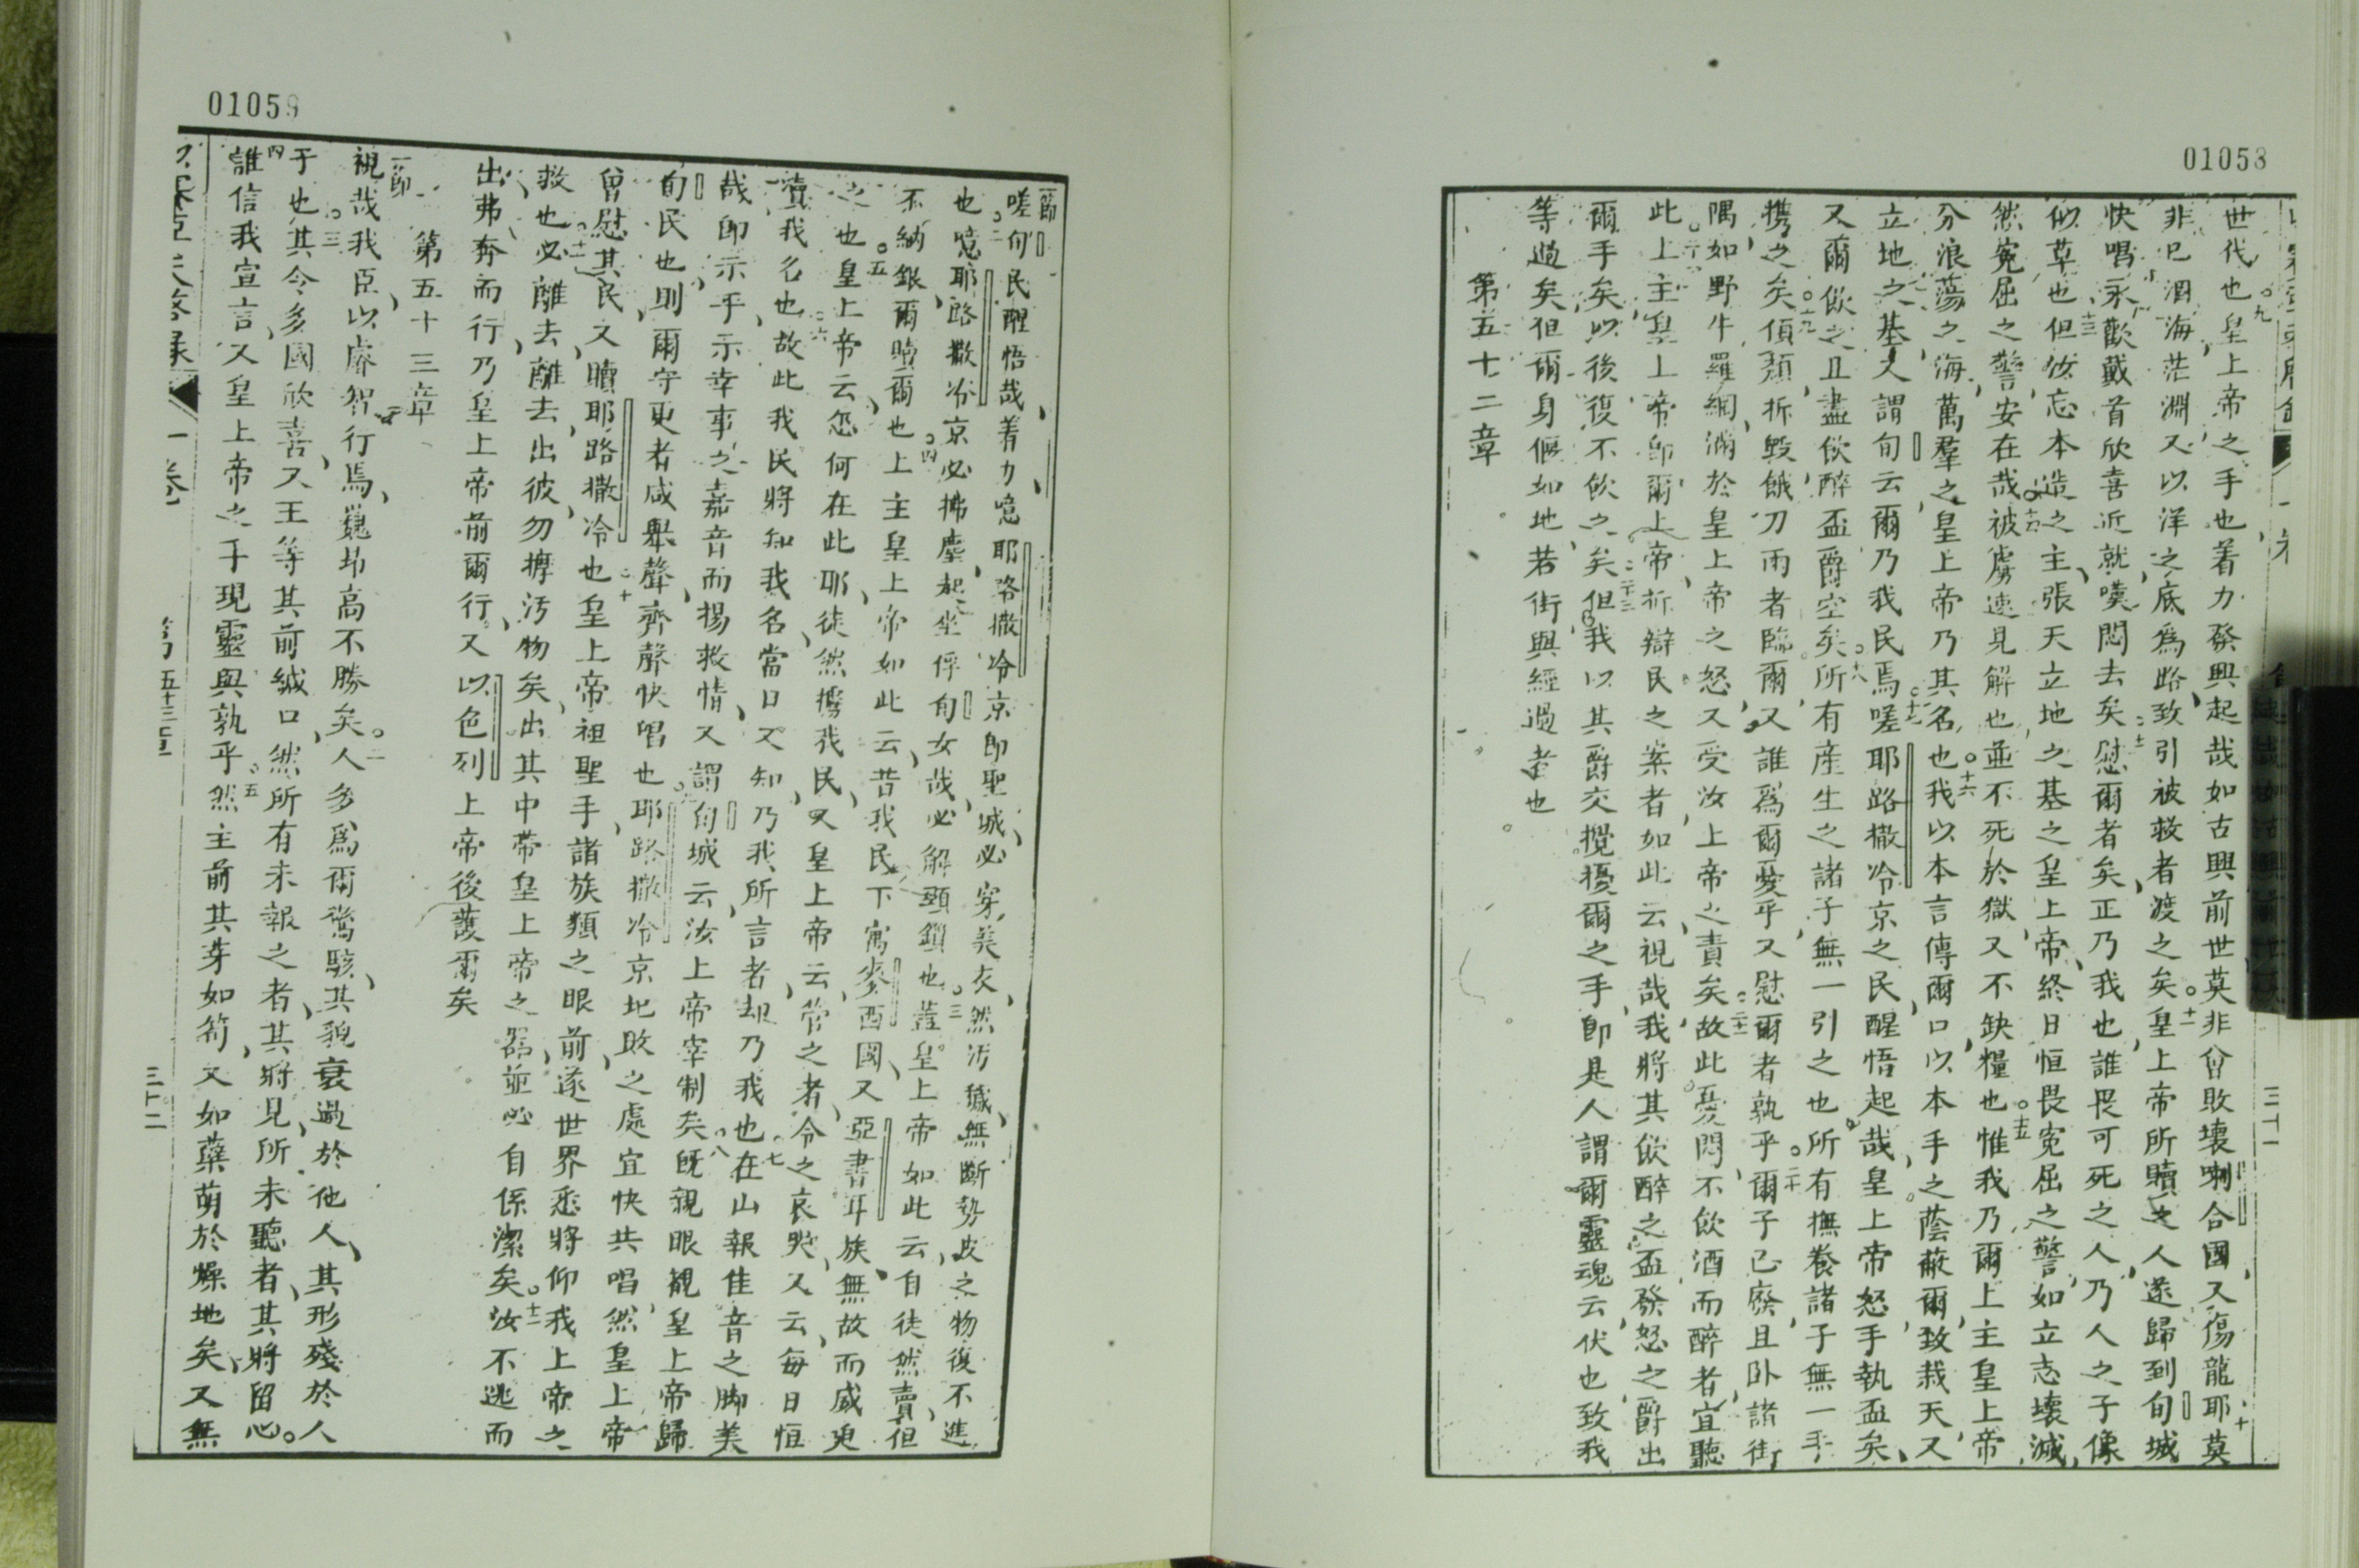 01058
世代也皇上帝之手也着力發興起哉如古興前世莫非曾敗壞喇合國又傷龍耶莫
非巳涸海茫淵又以洋之底爲路致引被救者渡之矣皇上帝所贖之人遂歸到旬城
快唱永歡戴首欣喜近就嘆悶去矣慰爾者矣正乃我也誰畏可死之人乃人之子像
似草也但汝忘本造之主張天立地之基之皇上帝終日恒畏寃屈之警如立志壞滅
然寃屈之警安在哉被虜速見解也並不死於獄又不缺糧也惟我乃爾上主皇上帝
分浪蕩之海萬羣之皇上帝乃其名也我以本言傳爾口以本手之蔭蔽爾致栽天又
立地之基又謂旬云爾乃我民焉嗟耶路撒冷京之民醒悟起哉皇上帝怒手執盃矣
又爾飲之且盡飲醉盃爵空矣所有產生之諸子無一引之也所有撫養諸子無一手
携之矣傾頹拆毀餓刀兩者臨爾又誰爲爾憂乎又慰爾者孰乎爾子已廢且卧諸街
隅如野牛羅網滿於皇上帝之怒又受汝上帝之責矣故此憂悶不飲酒而醉者宜聽
此上主皇上帝即爾上帝折辯民之案者如此云視哉我將其飲醉之盃發怒之爵出
爾手矣以後復不飲之矣但我以其爵交攪擾爾之手即是人謂爾靈魂云伏也致我
等過矣但爾身偃如地若街與經過者也
第五十二章
三十一
01059
節
嗟旬民醒悟哉着力噫耶路撒冷京即聖城必穿美衣然汚穢無斷勢皮之物復不進
也噫耶路撒冷京必拂塵起坐俘旬女哉必解頸鎖也蓋皇上帝如此云自徒然賣但
不納銀爾贖爾也上主皇上帝如此云昔我民下寓麥西國又亞書耳族無故而威廹
之也皇上帝云怎何在此耶徒然擄我民又皇上帝云管之者令之哀哭又云每日恒
瀆我名也故此我民將知我名當日又知乃我所言者却乃我也在山報佳音之脚美
哉即示乎示幸事之嘉音而揚救情又謂旬城云汝上帝宰制矣旣親眼覩皇上帝歸
旬民也則爾守更者咸舉聲齊聲快唱也耶路撒冷京圯敗之處宜快共唱然皇上帝
曾慰其民又贖耶路撒冷也皇上帝袒聖手諸族類之眼前遂世界悉將仰我上帝之
救也必離去離去出彼勿攠汚物矣出其中帶皇上帝之器並必自係潔矣汝不逃而
出弗奔而行乃皇上帝前爾行又以色列上帝後護爾矣
第五十三章
節
視哉我臣以睿智行焉巍昂高不勝矣人多爲爾驚駭其貌衰過於他人其形殘於人
于也其令多國欣喜又王等其前緘口然所有未報之者其將見所未聽者其將留心
誰信我宣言又皇上帝之手現靈與孰乎然主前其芽如笋又如蘖萌於燥地矣又無
第五十三章
三十二